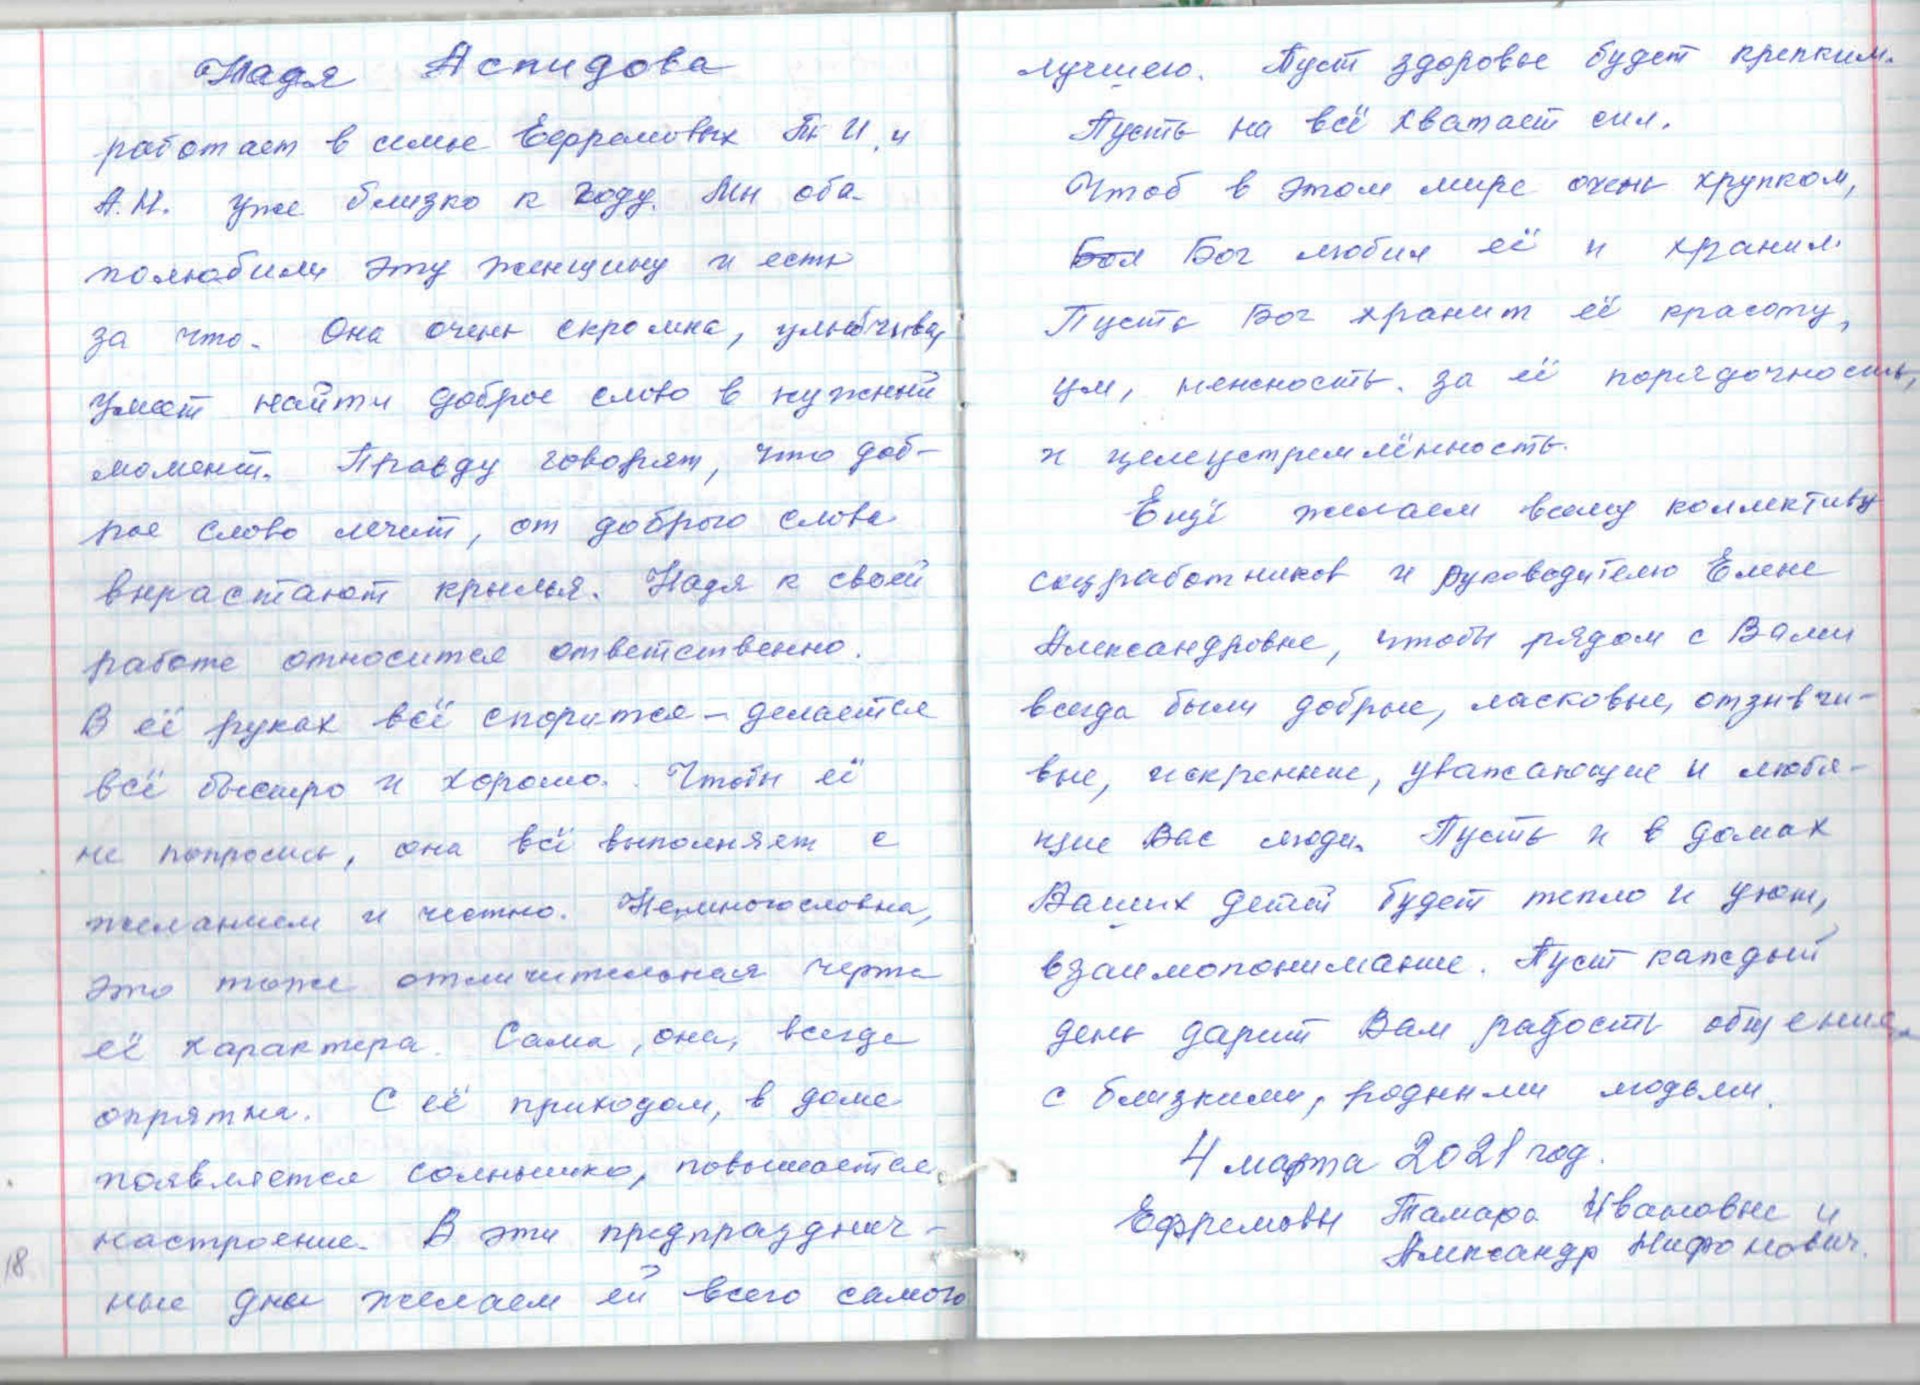 Надя Аспидова
работает в семье Ефремовых Т. И. и
А.Н. уже близко к году. Мы оба
полюбили эту женщину и есть
за что. Она очень скромна, улыбчива,
умеет найти доброе слово в нужный
момент. Правду говорят, что доб-
рое слово лечит, от доброго слова
вырастают крылья. Надя к своей
работе относится ответственно.
В её руках всё спорится – делается
всё быстро и хорошо. Чтобы её
не попросишь, она всё выполняет с
желанием и честно. Немногословна,
это тоже отличительная черта
её характера. Сама, она, всегда
опрятна. С её приходом, в доме
появляется солнышко, повышается
настроение. В эти предпразднич-
ные дни желаем ей всего самого
лучшего. Пуст здоровье будет крепким.
Пусть на всё хватает сил.
Чтоб в этом мире очень хрупком,
Бог любил её и хранил.
Пусть Бог хранит её красоту,
ум, нежность. за её порядочность,
и целеустремлённость.
Ещё желаем всему коллективу
соцработников и руководителю Елене
Александровне, чтобы рядом с Вами
всегда были добрые, ласковые, отзывчи-
вые, искренние, уважающие и любя-
щие Вас люди. Пусть и в домах
Ваших детей будет тепло и уют,
взаимопонимание. Пуст каждый
день дарит Вам радость общения
с близкими, родными людьми.
4 марта 2021 год.
Ефремовы Тамара Ивановне и
Александр Нифонович.
18